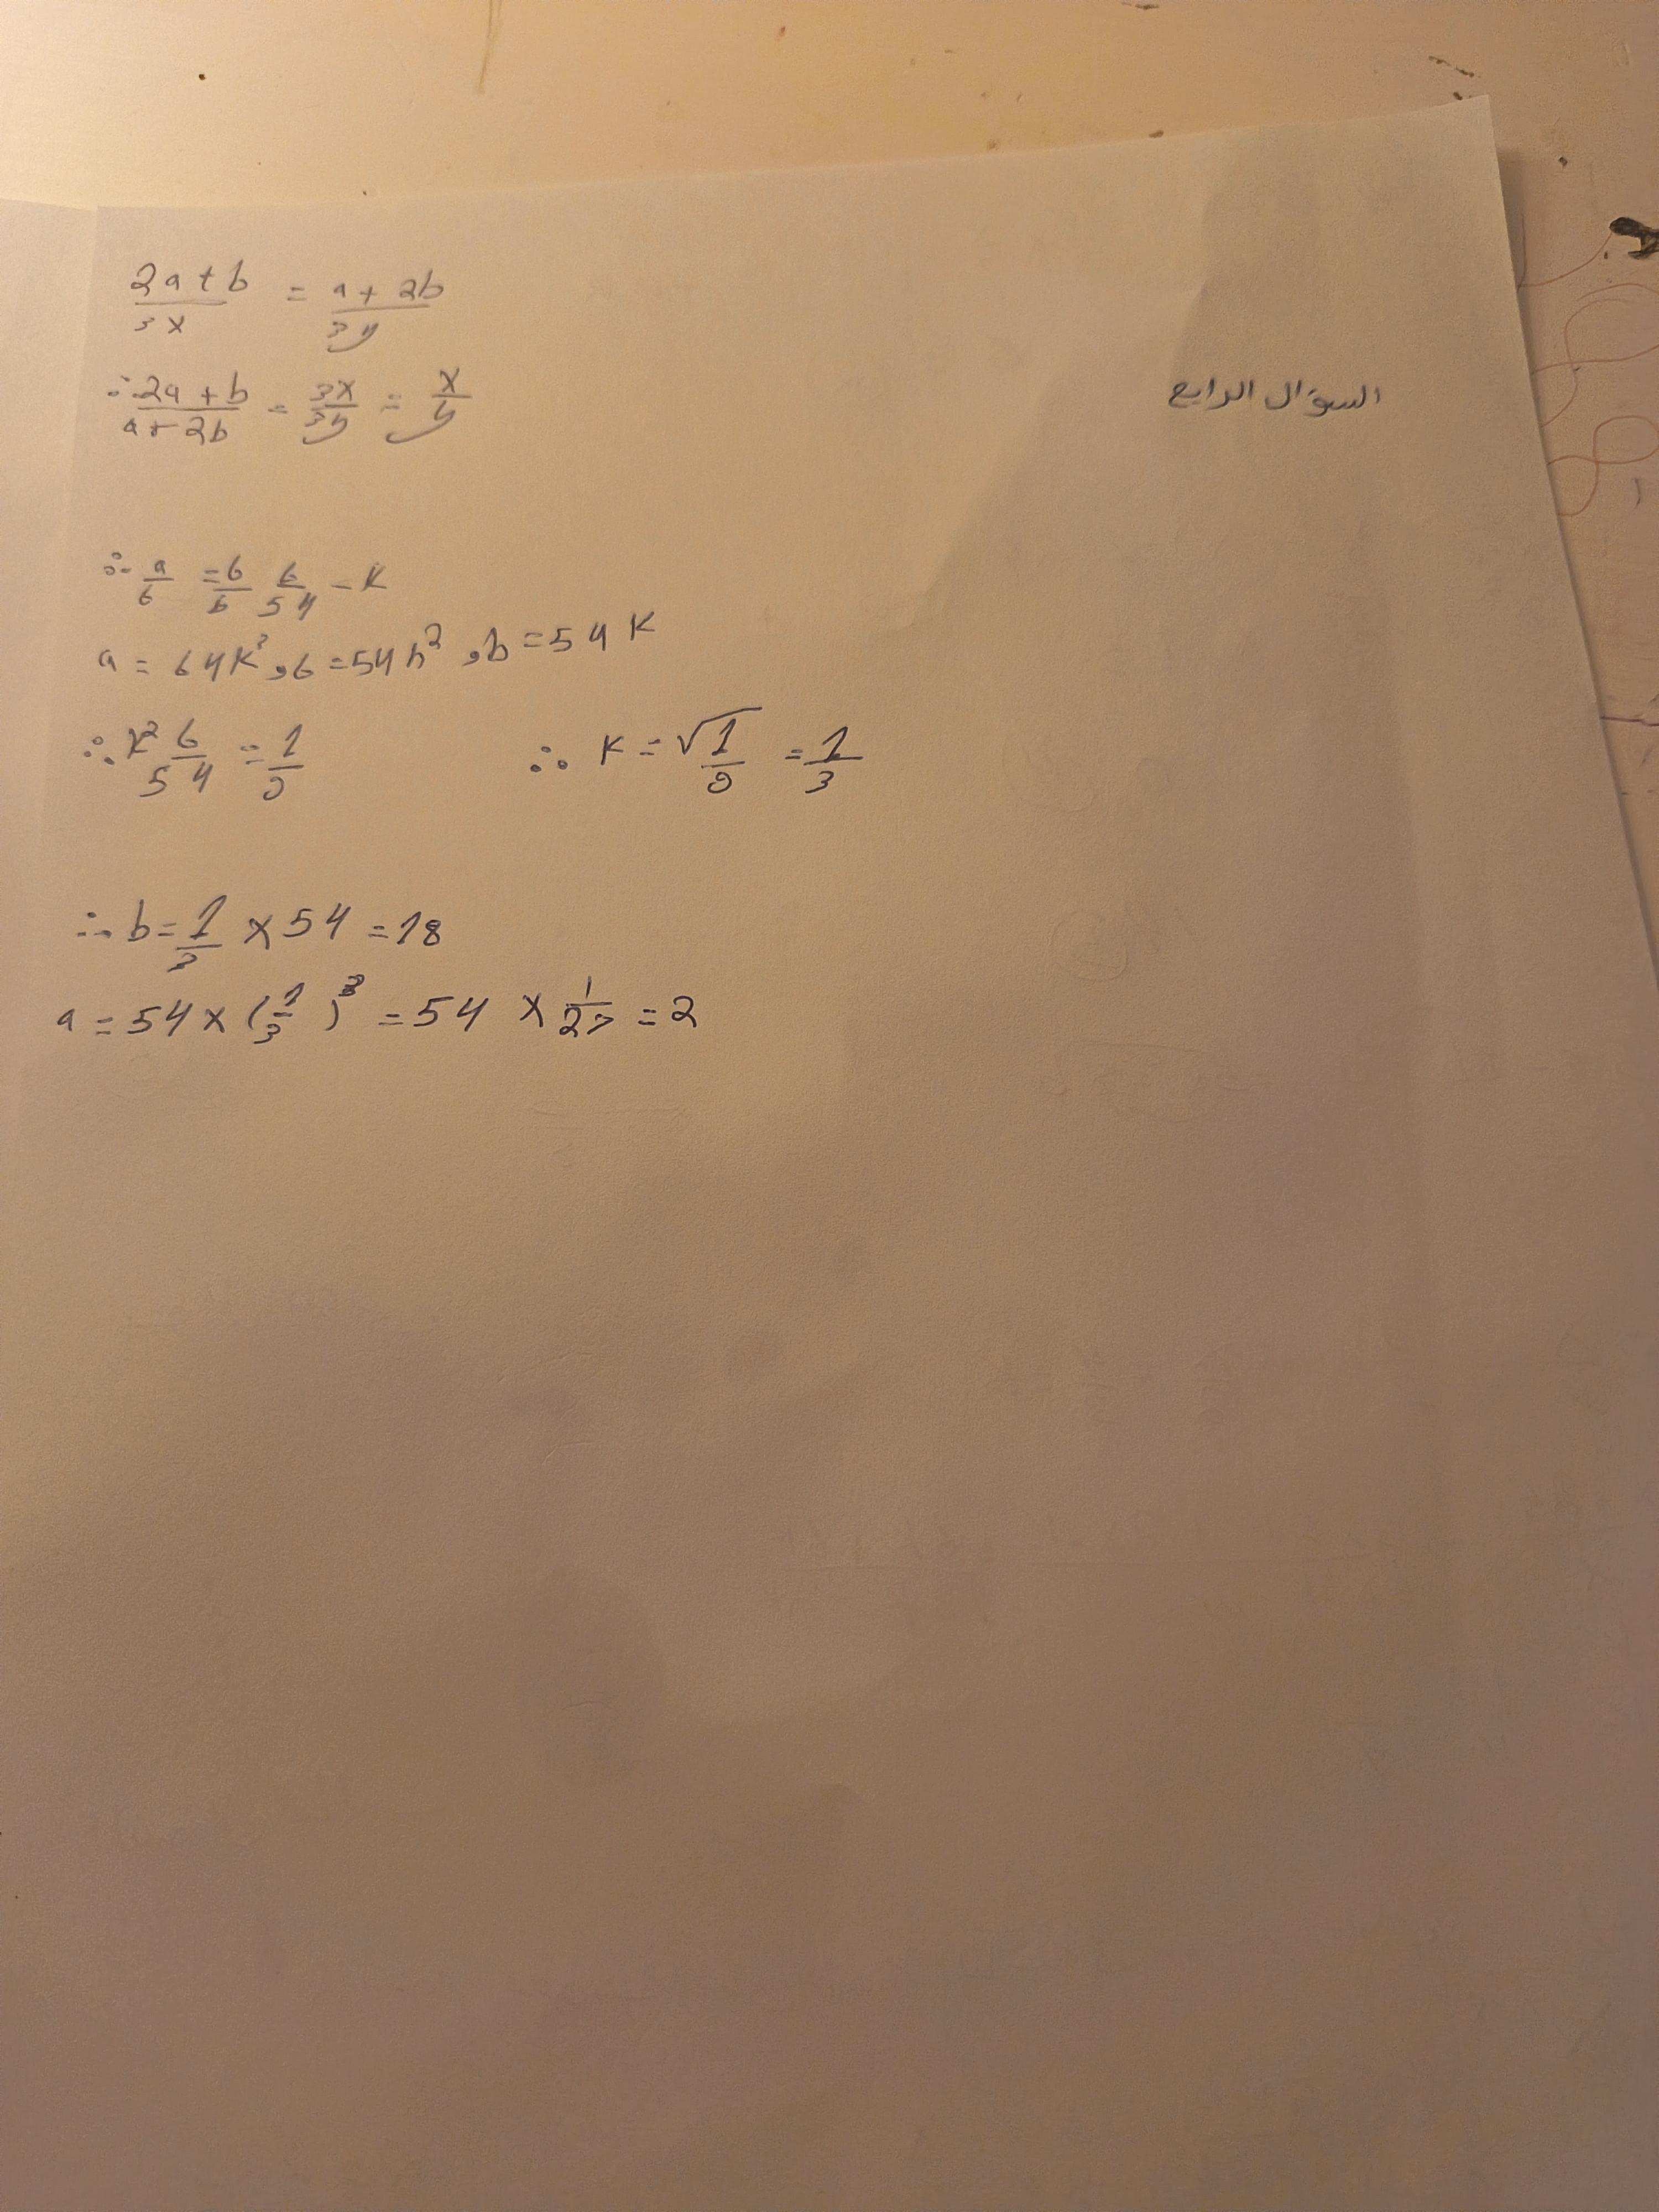 السؤال الرابع
2a + b / 3x = a + 2b / 3y
∴ 2a + b / a + 2b = 3x / 3y = x / y
∴ a / 6 = 6 / b b / 54 = K
a = 64K³, 6 = 54k², b = 54K
∴ K² 6 / 54 = 1 / 9 ∴ K = √1 / 9 = 1 / 3
∴ b = 1 / 3 × 54 = 18
a = 54 × (1 / 3)³ = 54 × 1 / 27 = 2